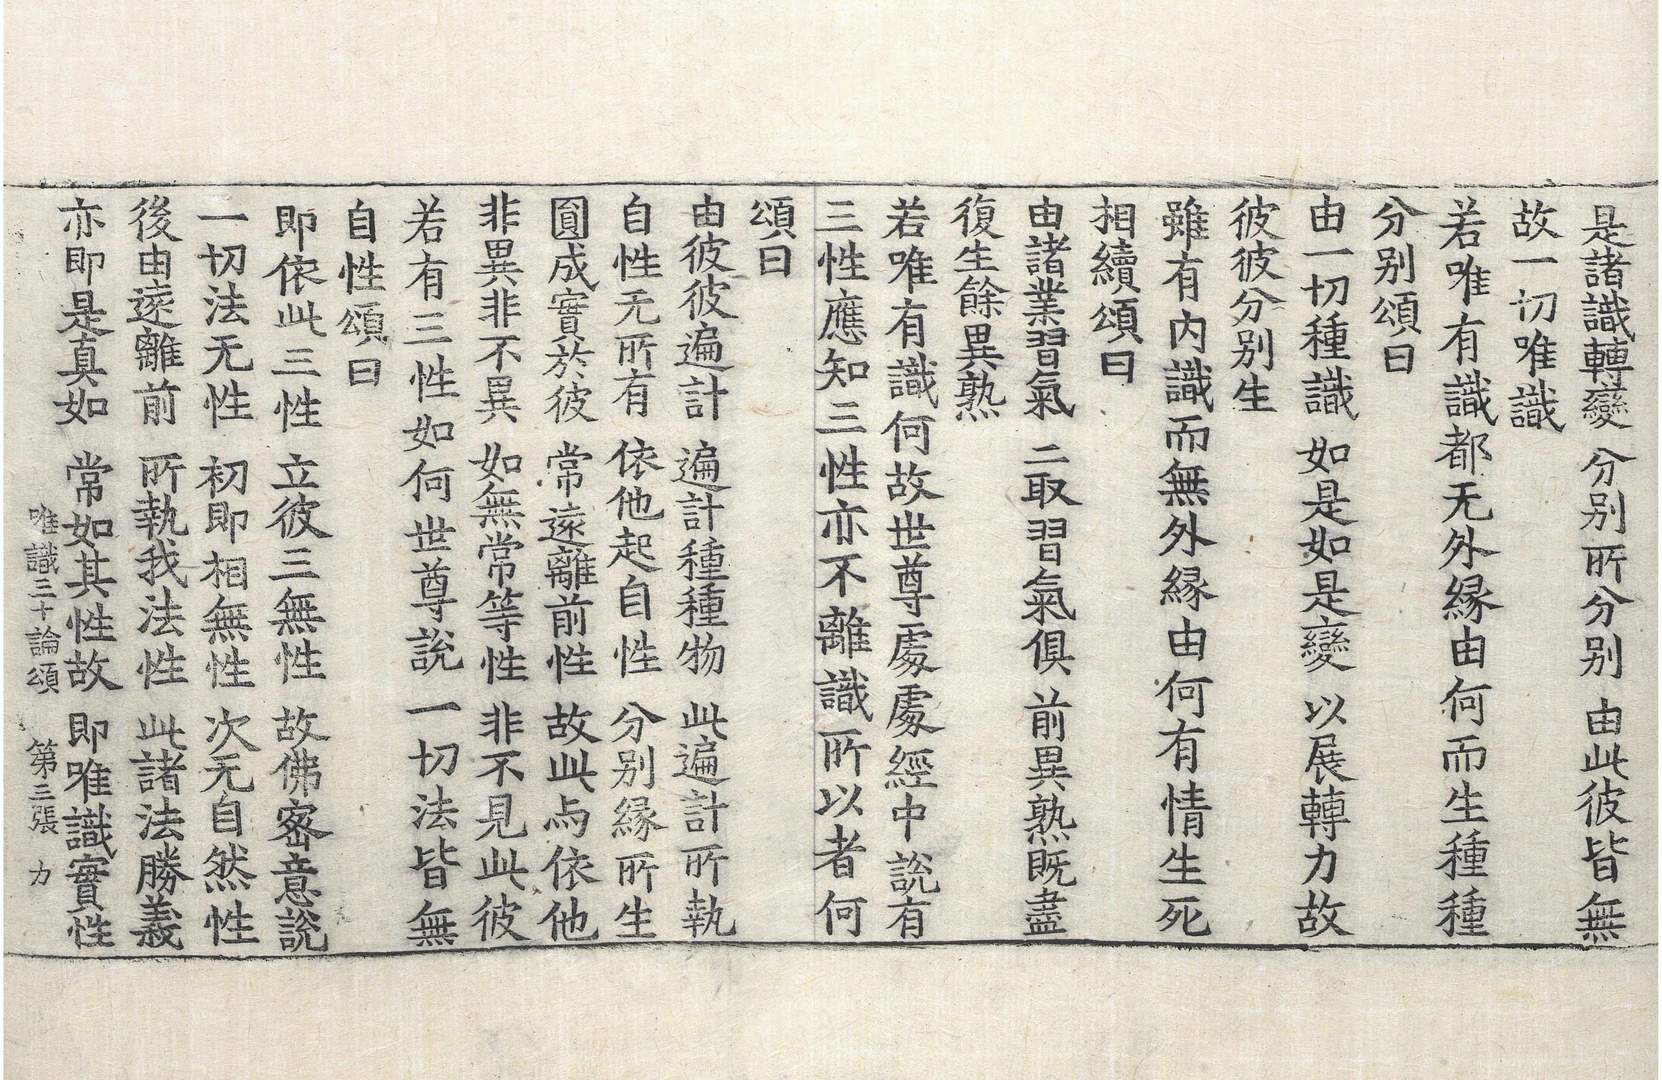 是諸識轉變 分别所分别 由此彼皆無
故一切唯識
若唯有識都无外縁由何而生種種
分别頌曰
由一切種識 如是如是變 以展轉力故
彼彼分别生
雖有内識而無外縁由何有情生死
相續頌曰
由諸業習氣 二取習氣俱 前異熟既盡
復生餘異熟
若唯有識何故世尊處處經中說有
三性應知三性亦不離識所以者何
頌曰
由彼彼遍計 遍計種種物 此遍計所執
自性无所有 依他起自性 分别縁所生
圓成實於彼 常遠離前性 故此与依他
非異非不異 如無常等性 非不見此彼
若有三性如何世尊說一切法皆無
自性頌曰
即依此三性 立彼三無性 故佛密意說
一切法无性 初即相無性 次无自然性
後由遠離前 所執我法性 此諸法勝義
亦即是真如 常如其性故 即唯識實性
唯識三十論頌 第三張 力